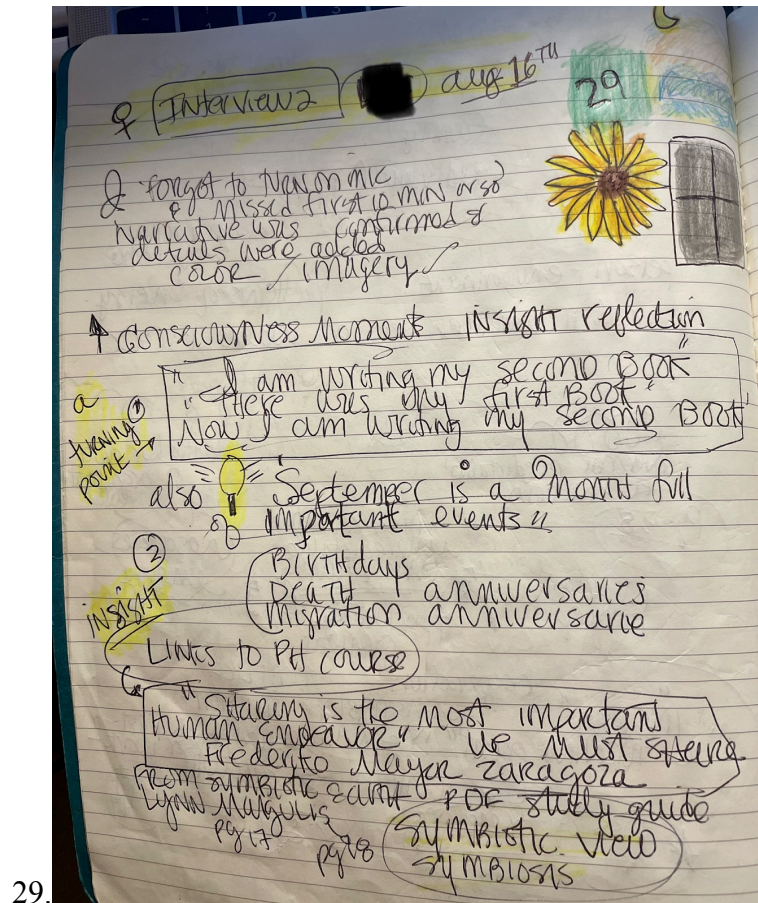 ♀ Interview 2 aug 16TH
29
I forgot to turn on mic
& missed first 10 min or so
Narrative was confirmed &
details were added
color / imagery ✓
↑ Consciousness Moments INSIGHT reflection
a
turning
point →
①
" I am writing my second Book"
"There was my first Book"
Now I am writing my second Book"
also "September is a month full
important events"
②
INSIGHT
BIRTHdays
DEATH anniversaries
migration anniversarie
LINKS to PH course
"Sharing is the most important
Human Endeavor" We must share
Frederito Mayar Zaragoza
From symbiotic earth PDF study guide
LYNN Margulis
pg 17
pg 18
SYMBIOTIC VIEW
SYMBIOSIS
29.